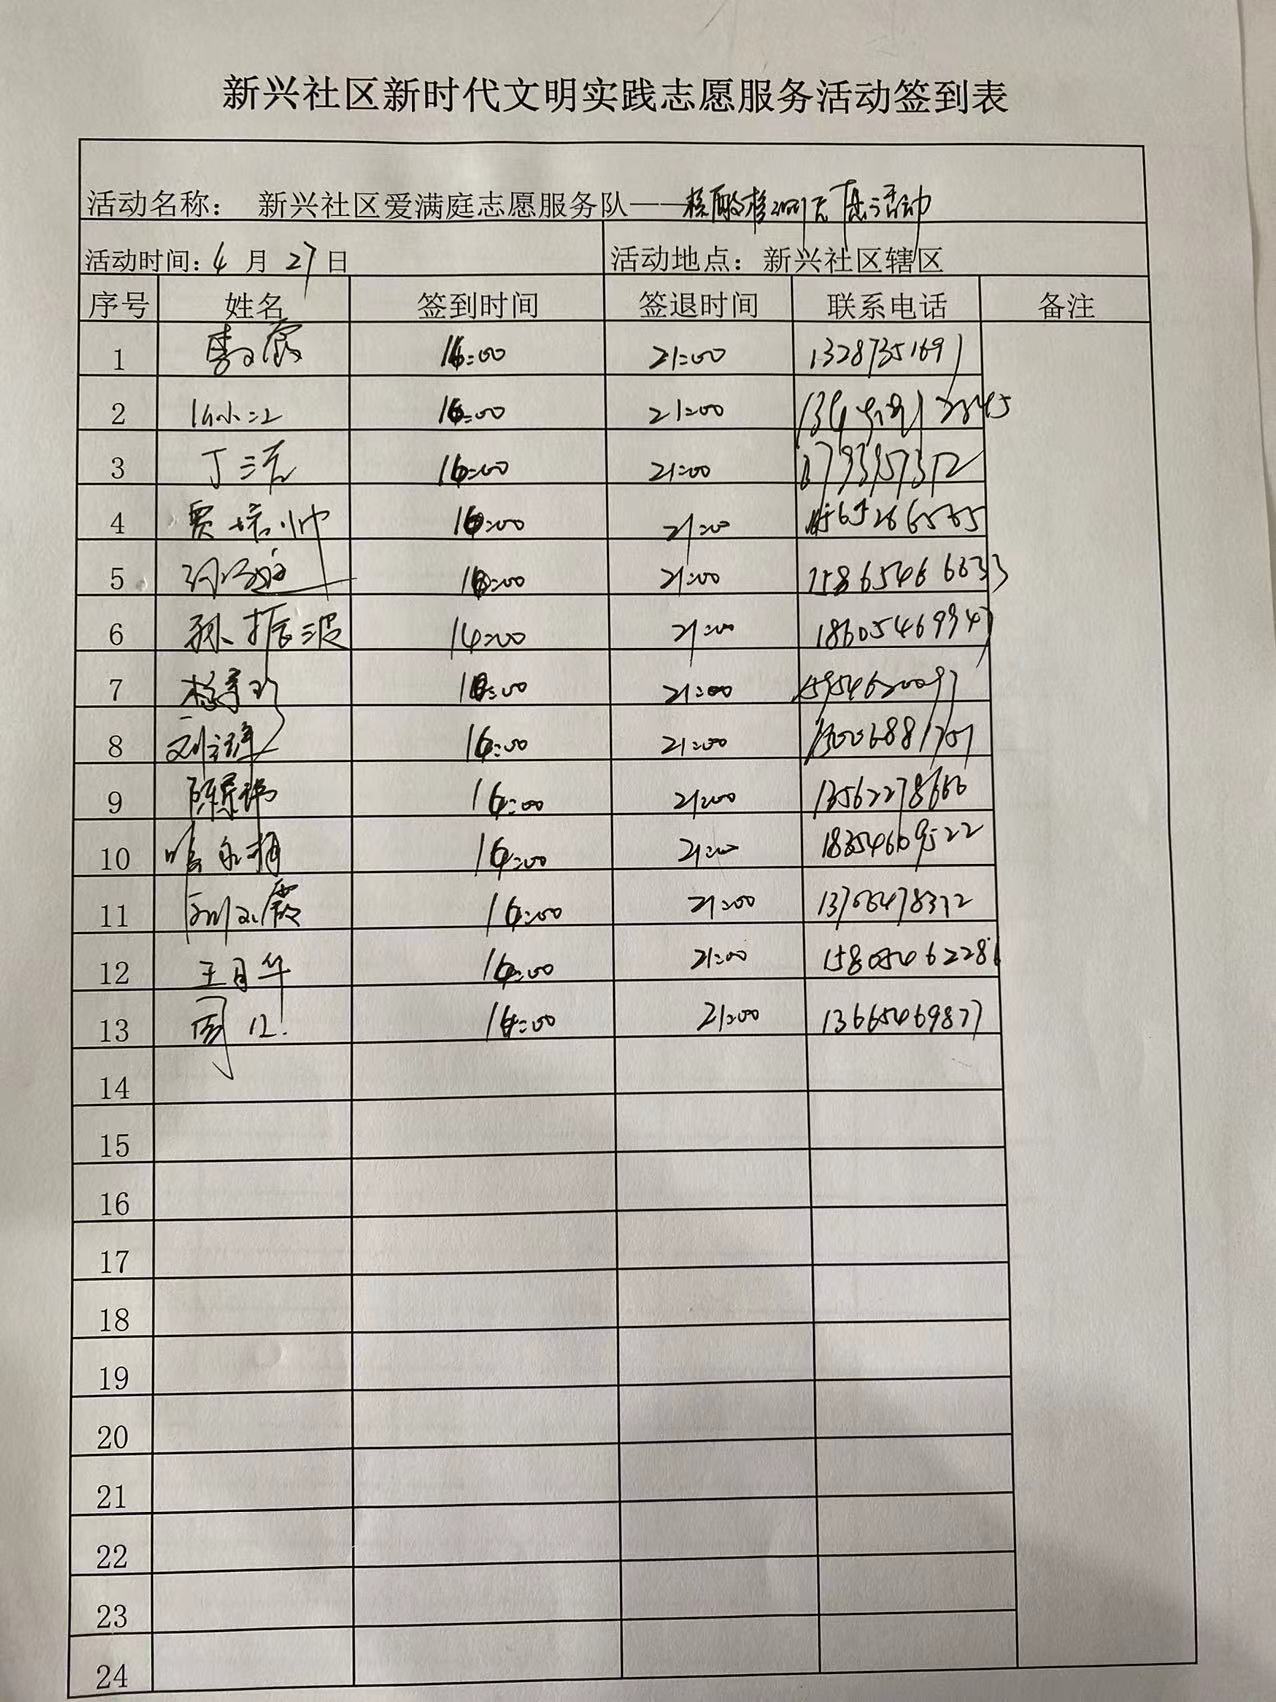 新兴社区新时代文明实践志愿服务活动签到表
活动名称： 新兴社区爱满庭志愿服务队——核酸检测志愿活动
活动时间：4 月 27 日 活动地点：新兴社区辖区
序号 姓名 签到时间 签退时间 联系电话 备注
1 16:00 21:00 13287351691
2 16:00 21:00
3 丁 16:00 21:00
4 贾培帅 16:00 21:00
5 16:00 21:00 15865466633
6 孙振波 16:00 21:00 18605469947
7 16:00 21:00 15954620097
8 16:00 21:00
9 16:00 21:00 13562278666
10 16:00 21:00 18354609522
11 16:00 21:00 13706478372
12 王月华 16:00 21:00 15805462286
13 周 16:00 21:00 13665469877
14
15
16
17
18
19
20
21
22
23
24